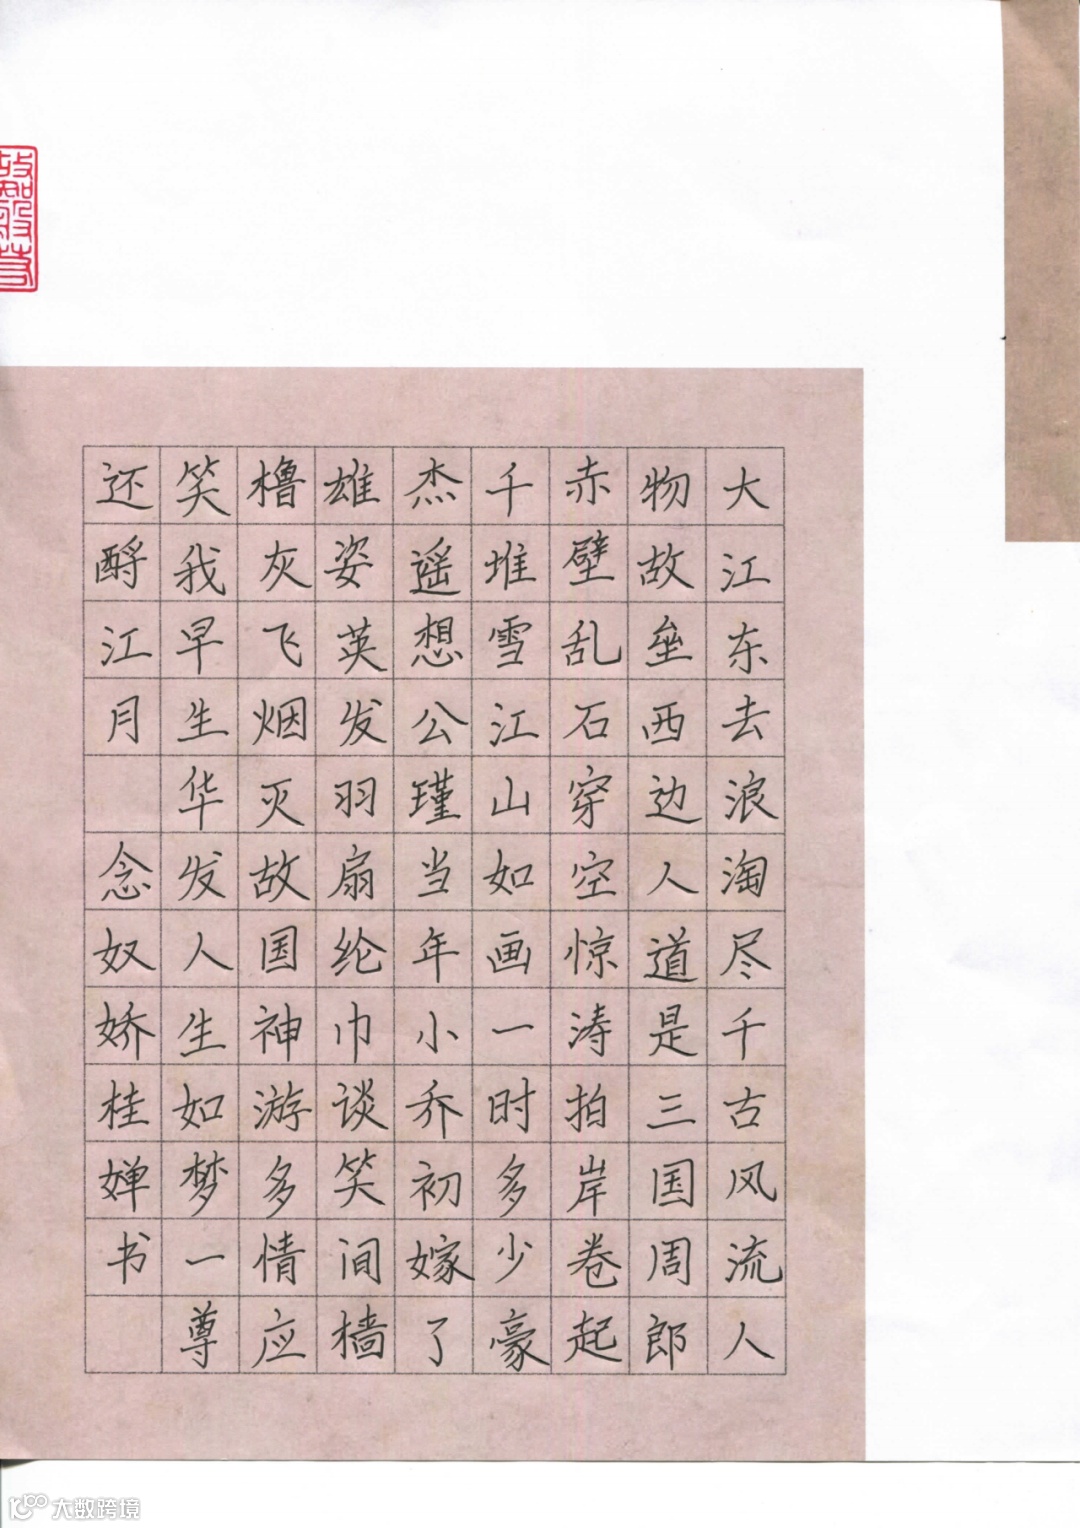 大江东去浪淘尽千古风流人
物故垒西边人道是三国周郎
赤壁乱石穿空惊涛拍岸卷起
千堆雪江山如画一时多少豪
杰遥想公瑾当年小乔初嫁了
雄姿英发羽扇纶巾谈笑间樯
橹灰飞烟灭故国神游多情应
笑我早生华发人生如梦一尊
还酹江月 念奴娇桂婵书
大数跨境